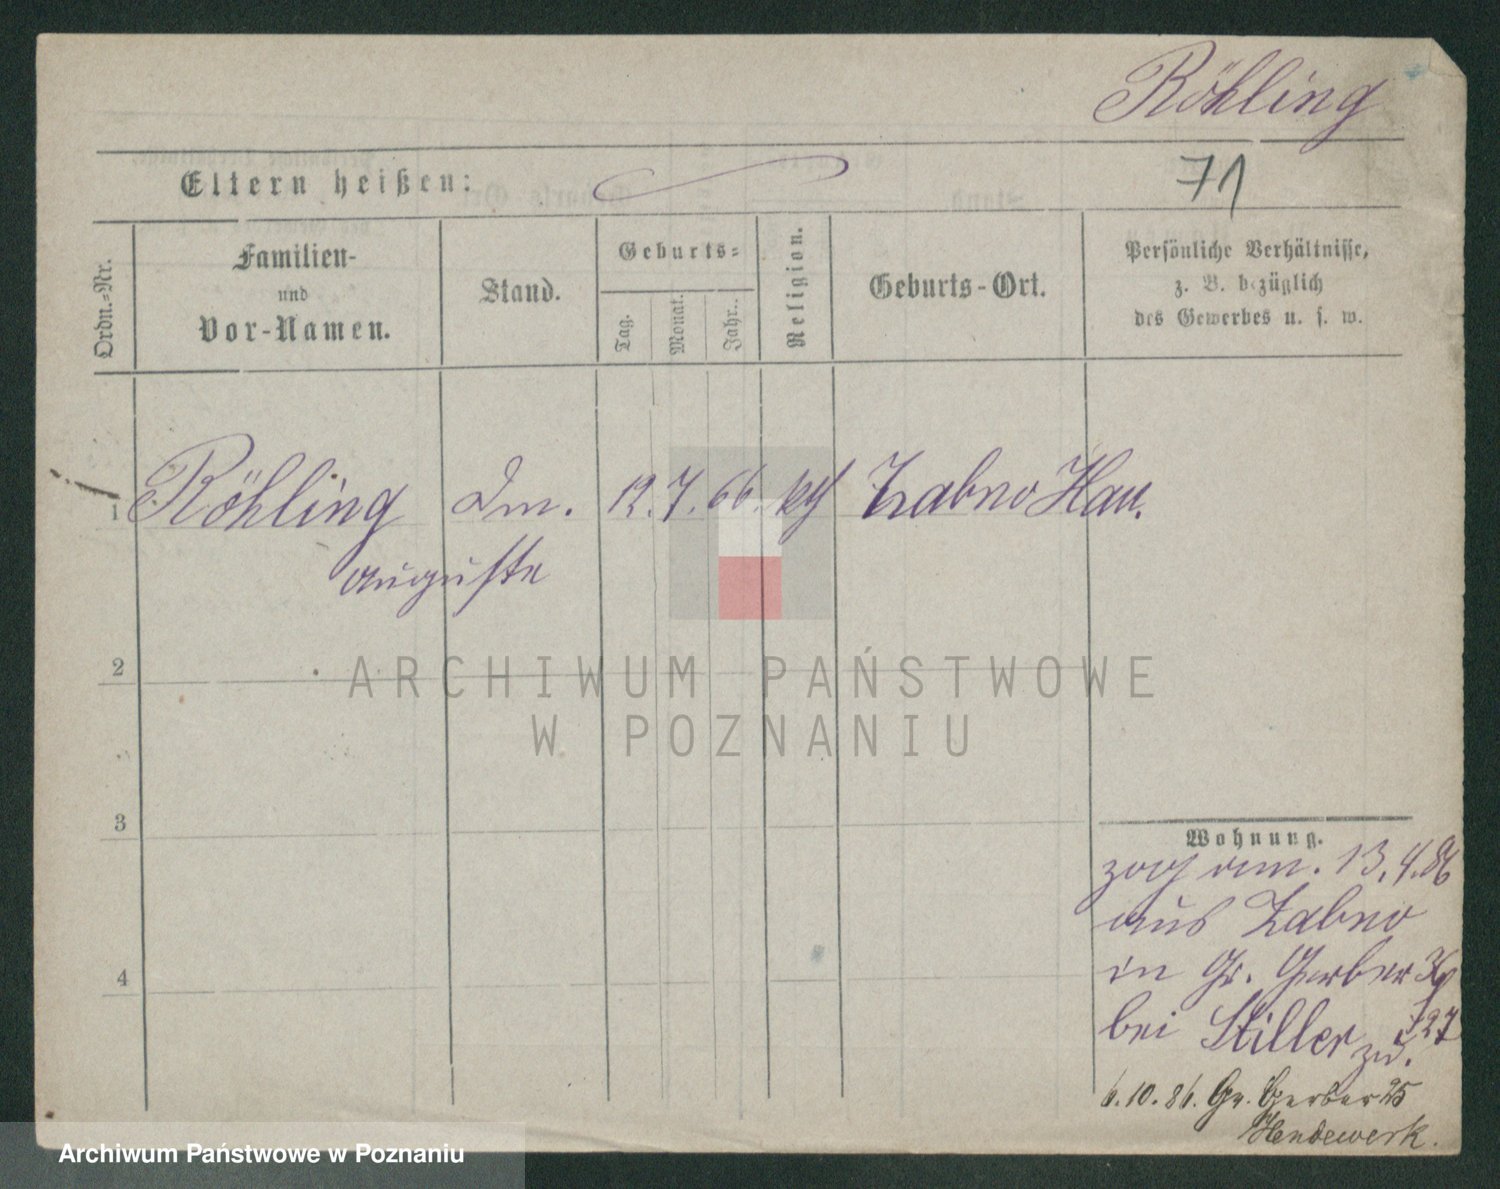 Röhling
71
Eltern heißen:
Ordn.-Nr.
Familien-
und
Vor-Namen.
Stand.
Geburts-
Tag.
Monat.
Jahr.
Religion.
Geburts-Ort.
Persönliche Verhältnisse,
z. B. bezüglich
des Gewerbes u. s. w.
1 Röhling Dm. 12. 7. 66. kth Zabno Hau.
Auguste
2
ARCHIWUM PAŃSTWOWE
W POZNANIU
3
Wohnung.
zog am. 13. 4. 86
aus Zabno
in Gr. Gerber
bei Stiller zu.
4
6. 10. 86. Gr. Gerber 25
Hendewerk.
Archiwum Państwowe w Poznaniu